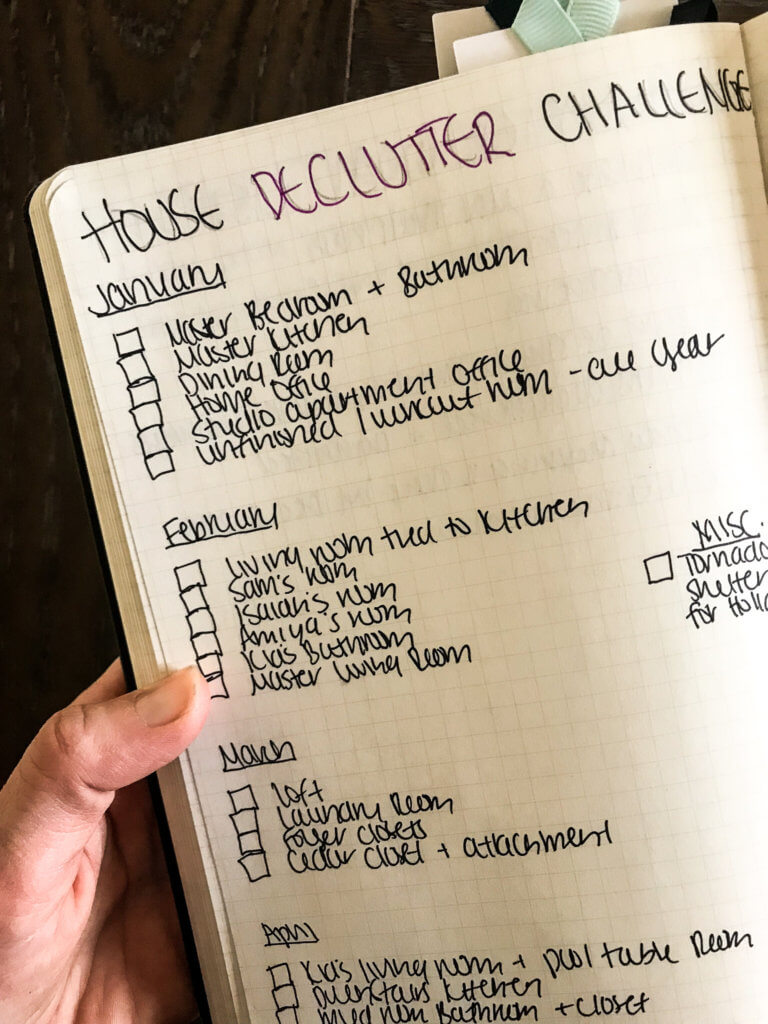 HOUSE DECLUTTER CHALLENGE
January
Master Bedroom + Bathroom
Master Kitchen
Dining Room
Home Office
Studio apartment office
unfinished / workout room - all year
February
Living room tied to kitchen
Sam's room
Isaiah's room
Amiya's room
Kid's Bathroom
Master Living Room
March
Loft
Laundry Room
Foyer closets
Cedar closet + attachment
April
Kid's living room + pool table Room
Kitchen
Bathroom + closet
MISC.
Tornado
shelter
for